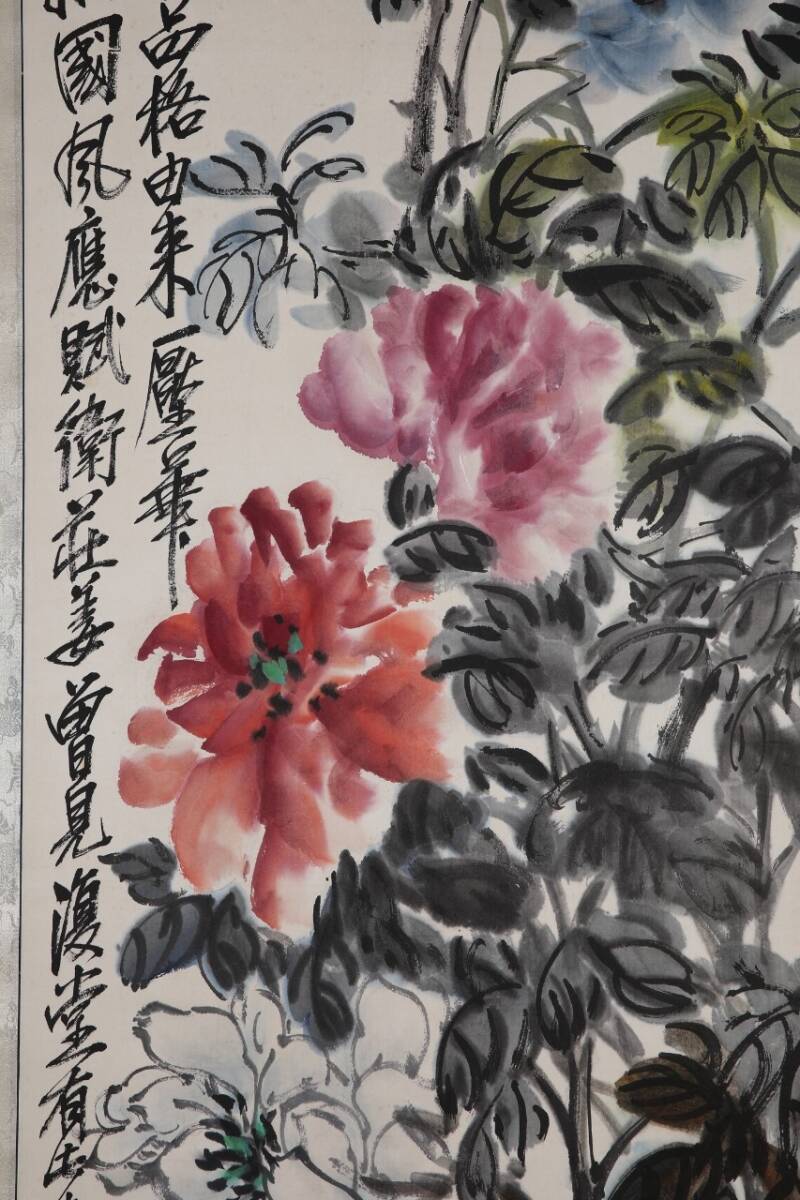 品格由来壓一華
國風應賦衛莊姜曾見復堂有